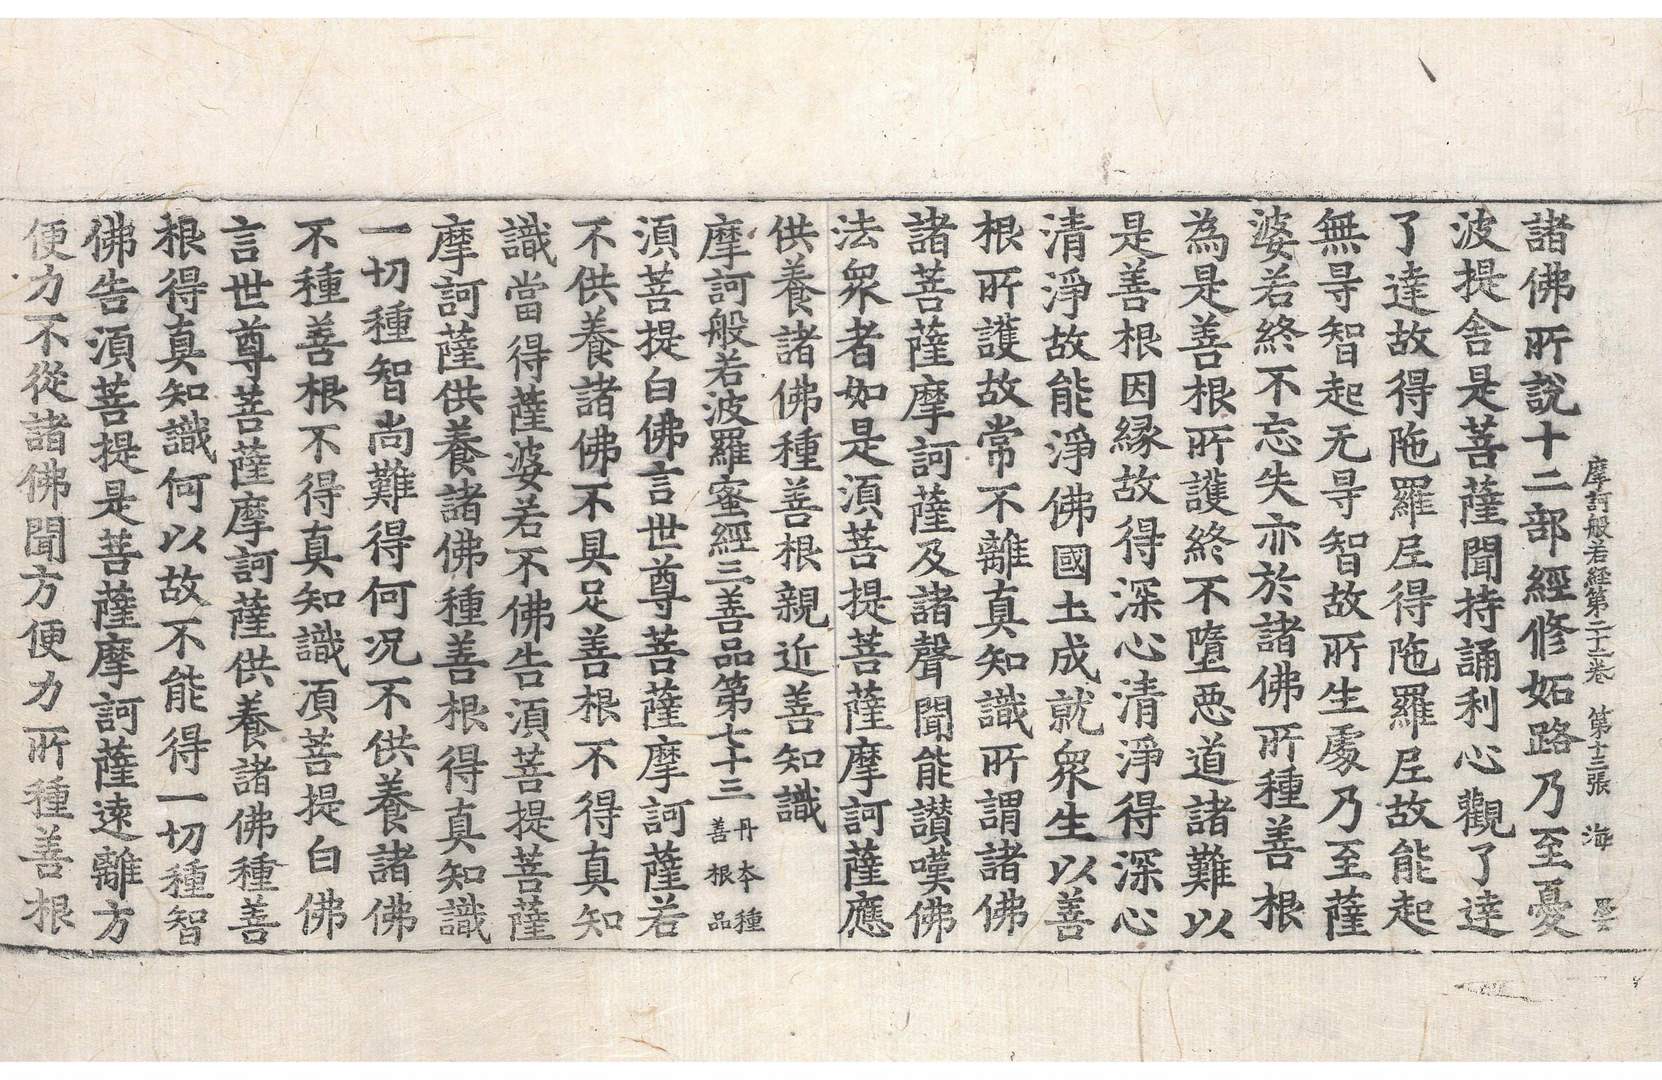 摩訶般若經第二十二卷　第十三張　海
諸佛所說十二部經修妬路乃至憂
波提舍是菩薩聞持誦利心觀了達
了達故得陁羅尼得陁羅尼故能起
無㝵智起无㝵智故所生處乃至薩
婆若終不忘失亦於諸佛所種善根
為是善根所護終不墮惡道諸難以
是善根因緣故得深心清淨得深心
清淨故能淨佛國土成就眾生以善
根所護故常不離真知識所謂諸佛
諸菩薩摩訶薩及諸聲聞能讚嘆佛
法眾者如是須菩提菩薩摩訶薩應
供養諸佛種善根親近善知識
摩訶般若波羅蜜經三善品第七十三 丹本種善根品
須菩提白佛言世尊菩薩摩訶薩若
不供養諸佛不具足善根不得真知
識當得薩婆若不佛告須菩提菩薩
摩訶薩供養諸佛種善根得真知識
一切種智尚難得何况不供養諸佛
不種善根不得真知識須菩提白佛
言世尊菩薩摩訶薩供養諸佛種善
根得真知識何以故不能得一切種智
佛告須菩提是菩薩摩訶薩遠離方
便力不從諸佛聞方便力所種善根